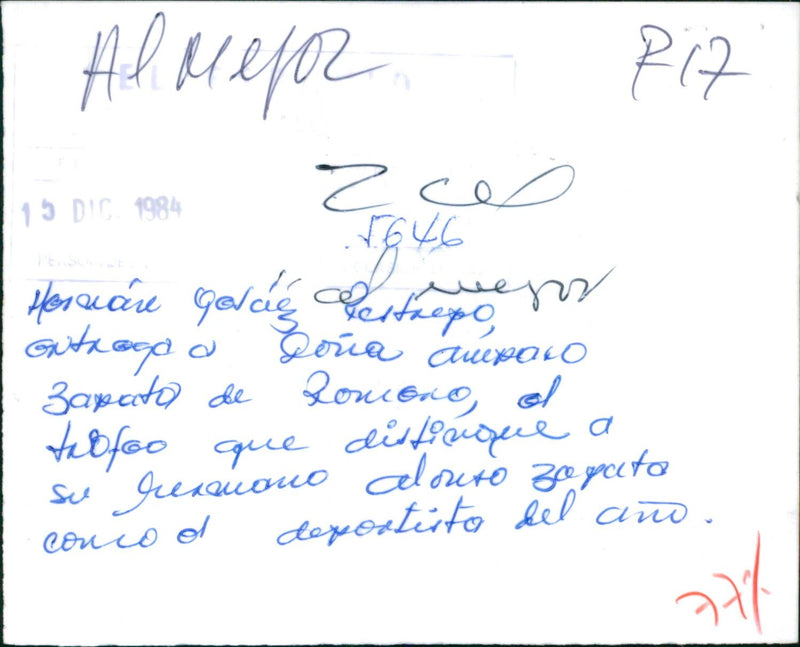 Al Mejor
P17
2 col
5646
15 DIC. 1984
al mejor
Hernán García Restrepo,
entrega a Doña Amparo
Zapata de Romero, el
trofeo que distingue a
su hermano Alonso Zapata
como el deportista del año.
77%